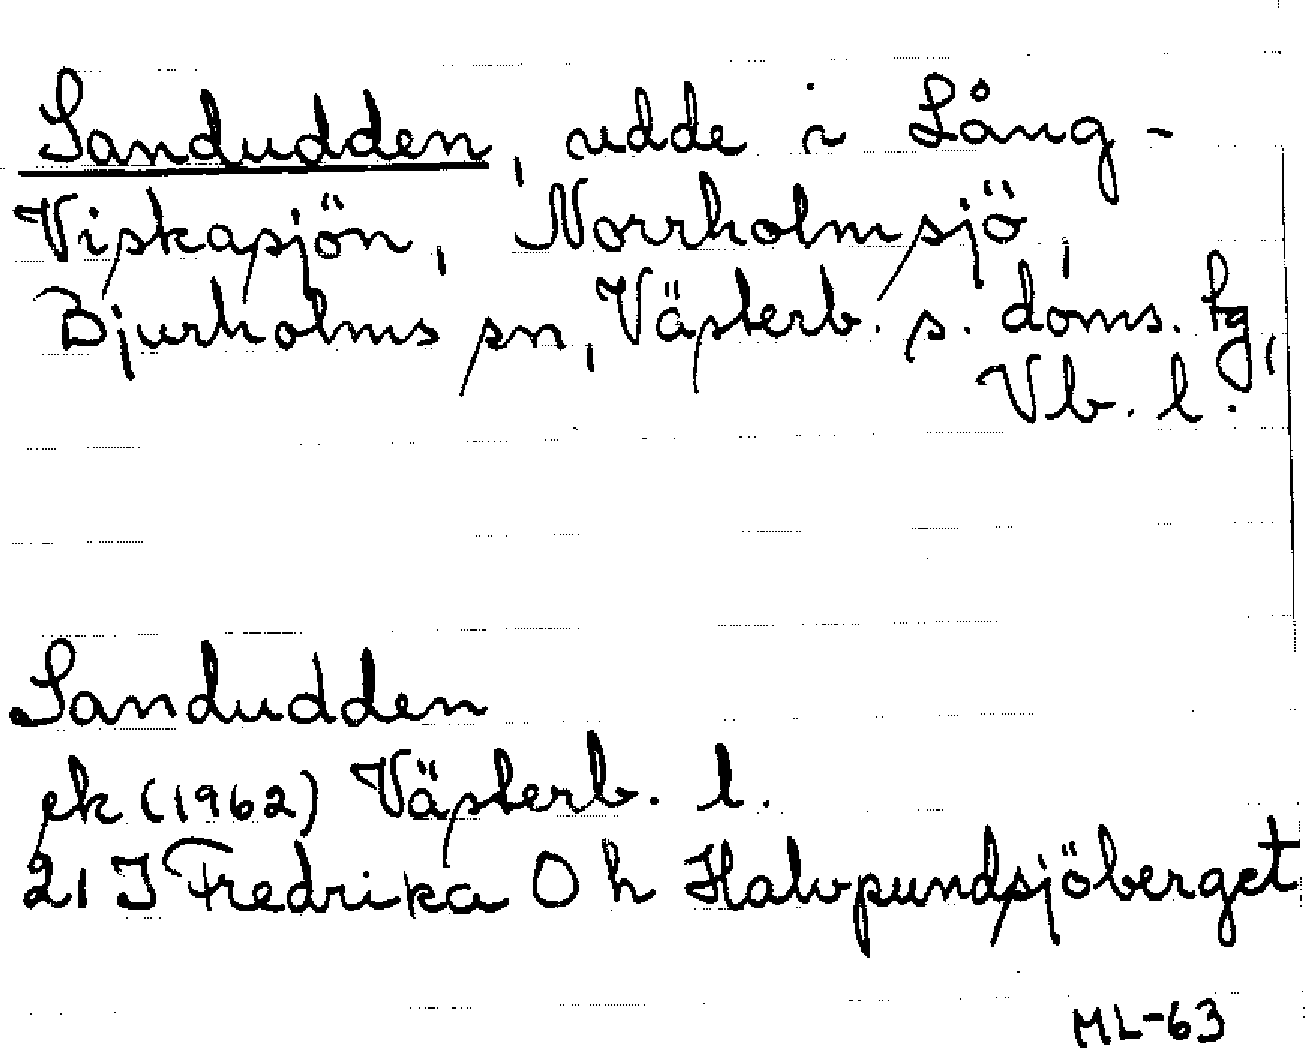 Sandudden, udde i Lång-
Viskasjön, Norrholmsjö,
Bjurholms sn, Västerb. s. doms. fg,
Vb. l.
Sandudden
ek (1962) Västerb. l.
21 J Fredrika O h Halvpundsjöberget
ML-63